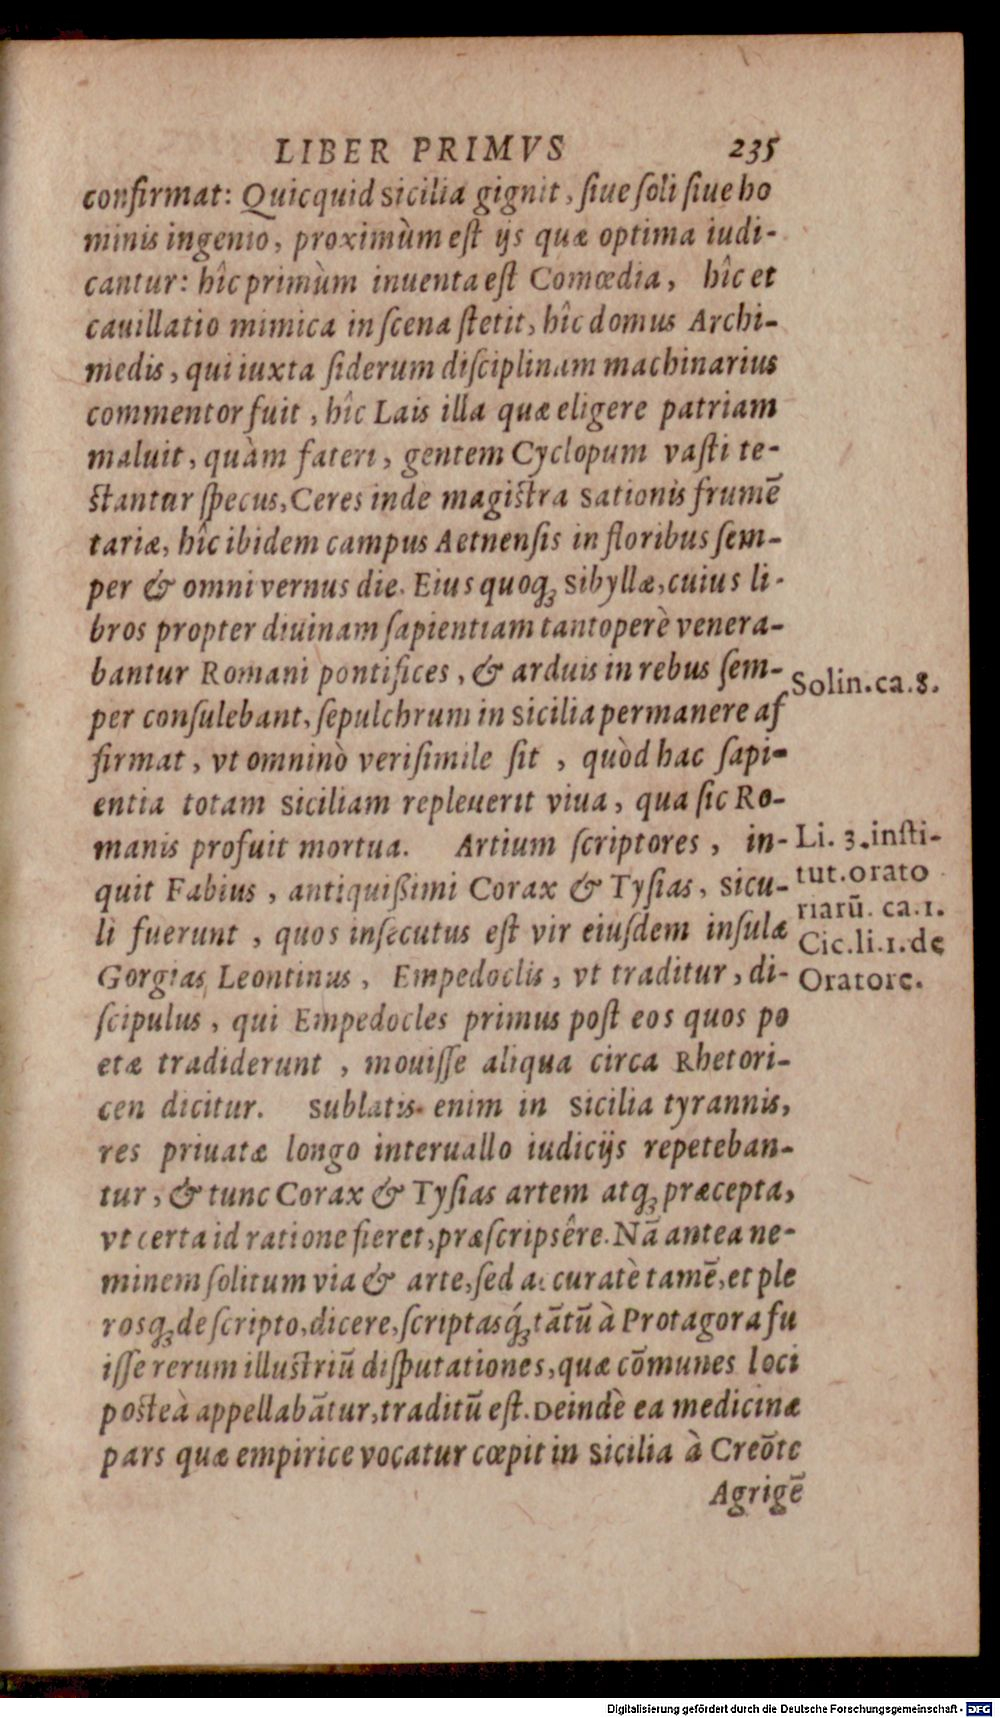 LIBER PRIMVS 235
confirmat: Quicquid Sicilia gignit, ſiue ſoli ſiue ho
minis ingenio, proximùm eſt ijs quæ optima iudi-
cantur: hîc primùm inuenta eſt Comœdia, hîc et
cauillatio mimica in ſcena ſtetit, hîc domus Archi-
medis, qui iuxta ſiderum diſciplinam machinarius
commentor fuit, hîc Lais illa quæ eligere patriam
maluit, quàm fateri, gentem Cyclopum vaſti te-
ſtantur ſpecus, Ceres inde magiſtra sationis frumē
tariæ, hîc ibidem campus Aetnenſis in floribus ſem-
per & omni vernus die. Eius quoqꝫ Sibyllæ, cuius li-
bros propter diuinam ſapientiam tantoperè venera-
bantur Romani pontifices, & arduis in rebus ſem-
Solin.ca.8.
per conſulebant, ſepulchrum in Sicilia permanere aſ
firmat, vt omninò veriſimile ſit, quòd hac ſapi-
entia totam Siciliam repleuerit viua, qua ſic Ro-
manis profuit mortua. Artium ſcriptores, in-
Li. 3.inſti-
quit Fabius, antiquißimi Corax & Tyſias, Sicu-
tut.orato
riarū. ca.1.
li fuerunt, quos inſecutus eſt vir eiuſdem inſulæ
Cic.li.1.de
Gorgias Leontinus, Empedoclis, vt traditur, di-
Oratore.
ſcipulus, qui Empedocles primus poſt eos quos po
etæ tradiderunt, mouiſſe aliqua circa Rhetori-
cen dicitur. Sublatis enim in Sicilia tyrannis,
res priuatæ longo interuallo iudicijs repeteban-
tur, & tunc Corax & Tyſias artem atqꝫ præcepta,
vt certa id ratione fieret, præſcripsêre. Nā antea ne-
minem ſolitum via & arte, ſed accuratè tamē, et ple
rosqꝫ de ſcripto, dicere, ſcriptasq́ꝫ tātū à Protagora fu
iſſe rerum illuſtriū diſputationes, quæ cōmunes loci
poſteà appellabātur, traditū eſt. Deindè ea medicinæ
pars quæ empirice vocatur cœpit in Sicilia à Creōte
Agrigē
Digitalisierung gefördert durch die Deutsche Forschungsgemeinschaft - DFG